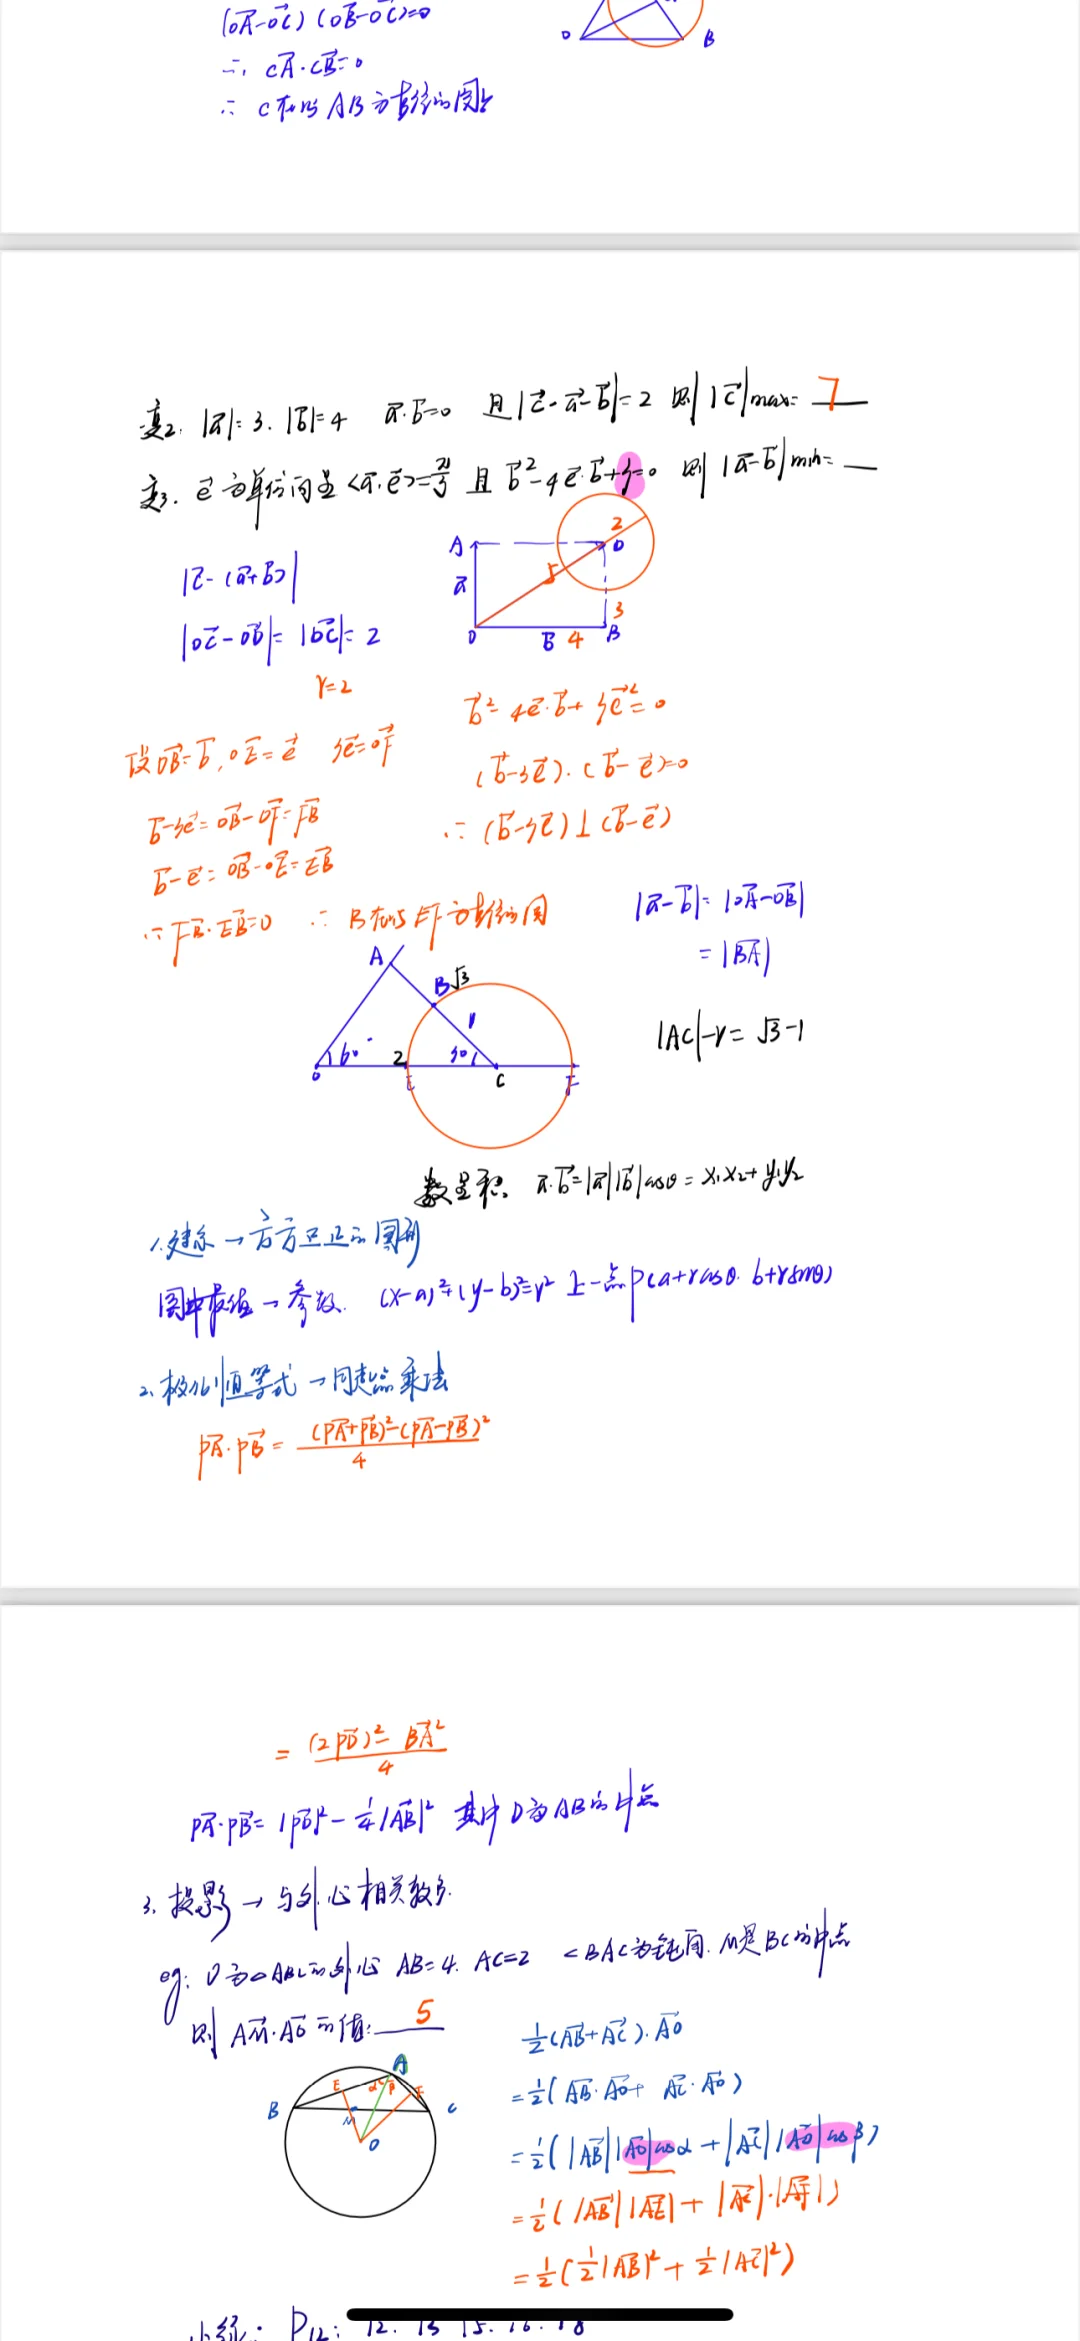 (OA-OC)(OB-OC)=0
∴ CA·CB=0
∴ C在以AB为直径的圆上
O B
变2. |a|=3. |b|=4 a·b=0 且|c-a-b|=2 则|c|max= 7
变3. e为单位向量<a·e>=π/3 且 b²-4e·b+3=0 则|a-b|min= __
|c-(a+b)|
|OC-OD|=|DC|=2
r=2
A D 2
a 5 3
O b 4 B
设OB=b, OE=e 3e=OF
b²-4e·b+3e²=0
(b-3e)·(b-e)=0
b-3e=OB-OF=FB
∴ (b-3e)⊥(b-e)
b-e=OB-OE=EB
∴ FB·EB=0 ∴ B在以EF为直径的圆
|a-b|=|OA-OB|
=|BA|
|AC|-r=√3-1
A B √3 1
60° 2 30° O E C F
数量积 a·b=|a||b|cosθ=x₁x₂+y₁y₂
1.建系→方方正正的图形
圆中最值→参数. (x-a)²+(y-b)²=r² 上一点P(a+rcosθ. b+rsinθ)
2.极化恒等式→同起点乘法
PA·PB= (PA+PB)²-(PA-PB)² / 4
= (2PD)²- BA² / 4
PA·PB=|PD|²-¼|AB|² 其中D为AB的中点
3.投影→与外心相关较多.
eg: O为△ABC的外心 AB=4. AC=2 <BAC为钝角. M是BC的中点
则 AM·AO的值: 5
½(AB+AC)·AO
=½(AB·AO+ AC·AO)
=½(|AB||AO|cosα+|AC||AO|cosβ)
=½(|AB||AE|+|AC|·|AF|)
=½(½|AB|²+½|AC|²)
A E α β F
B M C
O
小练: P12: 12. 13 15. 16. 18